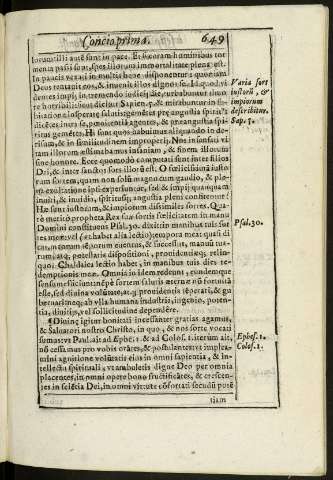 Concio prima. 649
lorum: illi aut&etilde; sunt in pace. Et si coram hominibus tor
menta passi sunt, spes illorum immortalitate plena est.
In paucis vexati in multis bene disponentur: quoniam
Deus tentauit eos, & inuenit illos dignos se. Hi quod vi
dentes impij, in tremendo iudicij die, turbabuntur timo
re horribili: quos dicit
Sapien. 5. & mirabuntur in su-
bitatione insperatæ salutis: gem&etilde;tes præ angustia spirit'9
dic&etilde;tes intra se, pœnitentiã agentes, & præ angustia spi
ritus gem&etilde;tes. Hi sunt quos habuimus aliquando in de-
risum, & in similitudinem improperij. Nos insensati vi
tam illorum æstimabamus insaniam, & finem illorum
sine honore. Ecce quomodo computati sunt inter filios
Dei, & inter sanctos sors illorũ est. O fœlicissimã iusto
rum sortem, quam non solũ magnum gaudio, & ple-
na exultatione ipsi experiuntur, sed & impij quanquam
inuiti, & inuidio, spiritusq; angustia pleni confitentur!
Hæ sunt iustorum, & impiorum dissimiles sortes. Qua-
re meritò propheta Rex suæ sortis fœlicitatem in manu
Domini constituens Psal. 30. dixit: in manibus tuis sor-
tes meæ: vel (vt habet alia lectio) tempora mea: quasi di
cat, omnium t&etilde;porum euentus, & successus, manuũ tua-
rum: tuæq; potestatis dispositioni, prouidentiæq; relin-
quo. Chaldaica lectio habet, in manibus tuis dies re-
demptionis meæ. Omnia in idem redeunt, eundemque
sensum efficiunt: n&etilde;pe sortem salutis æternæ nõ fortuita
esse, sed diuinæ volũtatis, atq; prouidentiæ t&etilde;perari, & gu
bernari: neq; ab vlla humana industria, ingenio, poten-
tia, diuitijs, vel sollicitudine dependêre.
¶Diuinæ igitur bonitati incessanter gratias agamus,
& Saluatori nostro Christo, in quo, & nos sorte vocati
sumus: vt Paul. ait ad Ephe. 1. & ad Colos. 1. iterum ait,
nõ cessamus pro vobis orãtes, & postulantes: vt implea-
mini agnitione volũtatis eius in omni sapientia, & in-
tellectu spirituali; vt ambuletis digne Deo per omnia
placentes, in omni opere bono fructificãtes, & crescen-
tes in sci&etilde;tia Dei, in omni virtute cõfortati secudũ pot&etilde;
tiam
Varia sors
iustorũ, &
impiorum
describitur.
Sap. 5.
Psal. 30.
Ephes. 1.
Colos. 1.